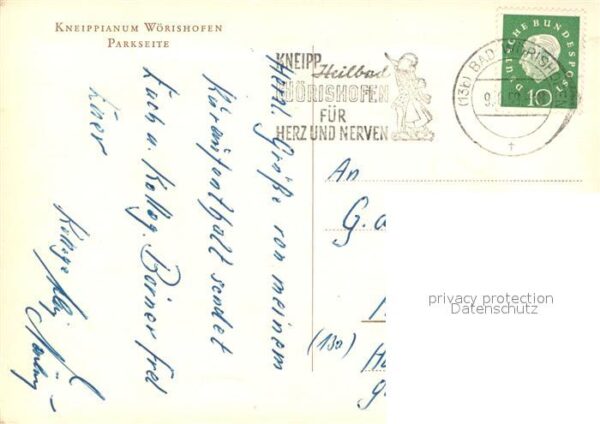 KNEIPPIANUM WÖRISHOFEN
PARKSEITE
KNEIPP
Heilbad
WÖRISHOFEN
FÜR
HERZ UND NERVEN
DEUTSCHE BUNDESPOST
10
(13b) BAD WÖRISHOFEN
Herzl. Grüße von meinem
Kuraufenthalt sendet
Euch u. Kolleg. Börner frei
Euer
Kollege
An
G.
(13a)
privacy protection
Datenschutz